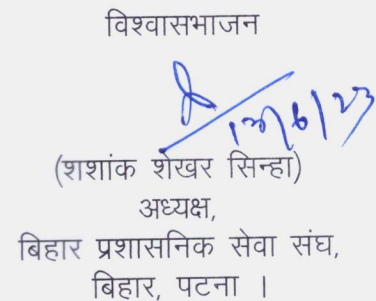 विश्वासभाजन
13/6/23
(शशांक शेखर सिन्हा)
अध्यक्ष,
बिहार प्रशासनिक सेवा संघ,
बिहार, पटना ।